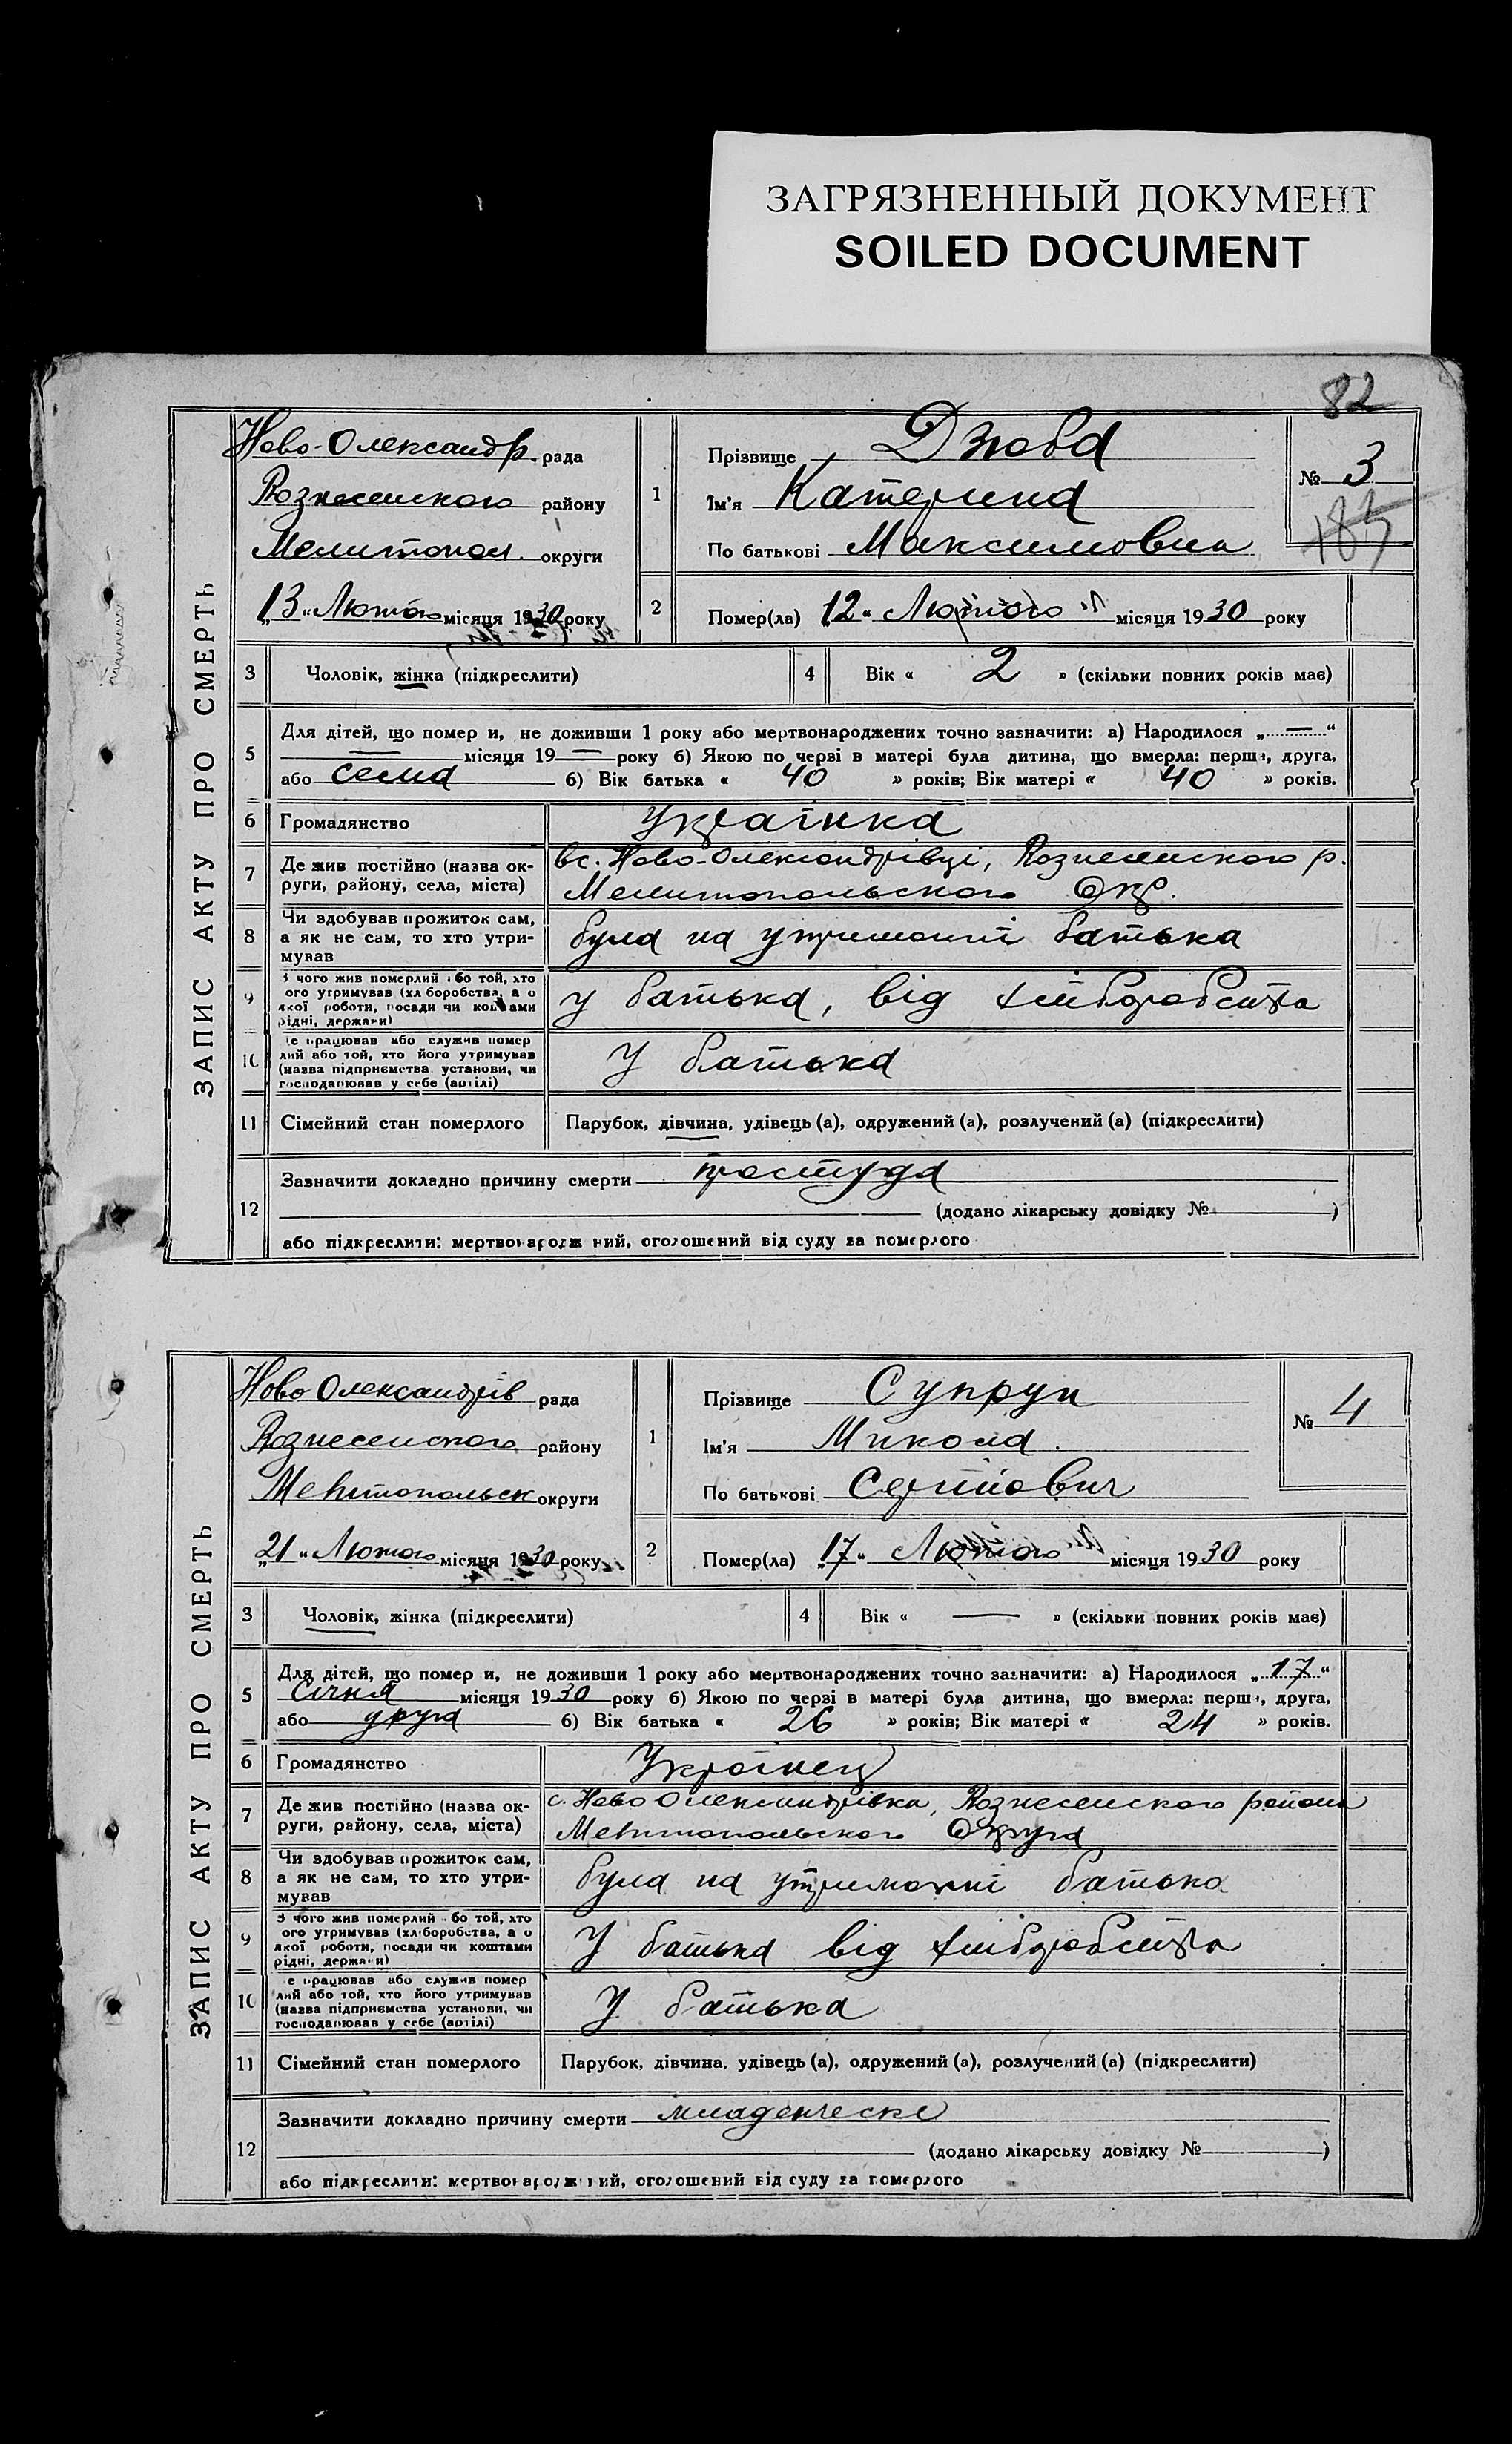 ЗАГРЯЗНЕННЫЙ ДОКУМЕНТ
SOILED DOCUMENT
82
ЗАПИС АКТУ ПРО СМЕРТЬ
Ново-Олександр. рада
Вознесенского району
Мелитопол. округи
„13“ Лютого місяця 1930 року
1 Прізвище Дзюба
Ім'я Катерина
По батькові Максимовна
№ 3
2 Помер(ла) „12“ Лютого місяця 1930 року
3 Чоловік, жінка (підкреслити) 4 Вік « 2 » (скільки повних років має)
5 Для дітей, що помер и, не доживши 1 року або мертвонароджених точно зазначити: а) Народилося „ — “
— місяця 19 — року б) Якою по черзі в матері була дитина, що вмерла: перша, друга,
або сема б) Вік батька « 40 » років; Вік матері « 40 » років.
6 Громадянство Українка
7 Де жив постійно (назва ок-
руги, району, села, міста)
вс. Ново-Олександрівці, Вознесенского р.
Мелитопольского Окр.
8 Чи здобував прожиток сам,
а як не сам, то хто утри-
мував
була на утриманні батька
9 З чого жив померлий або той, хто
ого утримував (хліборобства, а о
якої роботи, посади чи коштами
рідні, держави)
у батька, від хліборобства
10 е працював або служив помер
лий або той, хто його утримував
(назва підприємства установи, чи
господарював у себе (артілі)
У батька
11 Сімейний стан померлого Парубок, дівчина, удівець (а), одружений (а), розлучений (а) (підкреслити)
12 Зазначити докладно причину смерти простуда
(додано лікарську довідку № )
або підкреслити: мертвонароджений, оголошений від суду за померлого
ЗАПИС АКТУ ПРО СМЕРТЬ
Ново Олександрів рада
Вознесенского району
Мелитопольск округи
„21“ Лютого місяця 1930 року
1 Прізвище Супрун
Ім'я Микола.
По батькові Сергійович
№ 4
2 Помер(ла) „17“ Лютого місяця 1930 року
3 Чоловік, жінка (підкреслити) 4 Вік « — » (скільки повних років має)
5 Для дітей, що помер и, не доживши 1 року або мертвонароджених точно зазначити: а) Народилося „17“
Січня місяця 1930 року б) Якою по черзі в матері була дитина, що вмерла: перша, друга,
або друга б) Вік батька « 26 » років; Вік матері « 24 » років.
6 Громадянство Українец
7 Де жив постійно (назва ок-
руги, району, села, міста)
с. Ново Олександрівка, Вознесенского района
Мелитопольского Округа
8 Чи здобував прожиток сам,
а як не сам, то хто утри-
мував
була на утриманні батька
9 З чого жив померлий або той, хто
ого утримував (хліборобства, а о
якої роботи, посади чи коштами
рідні, держави)
У батька від хліборобства
10 е працював або служив помер
лий або той, хто його утримував
(назва підприємства установи, чи
господарював у себе (артілі)
У батька
11 Сімейний стан померлого Парубок, дівчина, удівець (а), одружений (а), розлучений (а) (підкреслити)
12 Зазначити докладно причину смерти младенческе
(додано лікарську довідку № )
або підкреслити: мертвонароджений, оголошений від суду за померлого